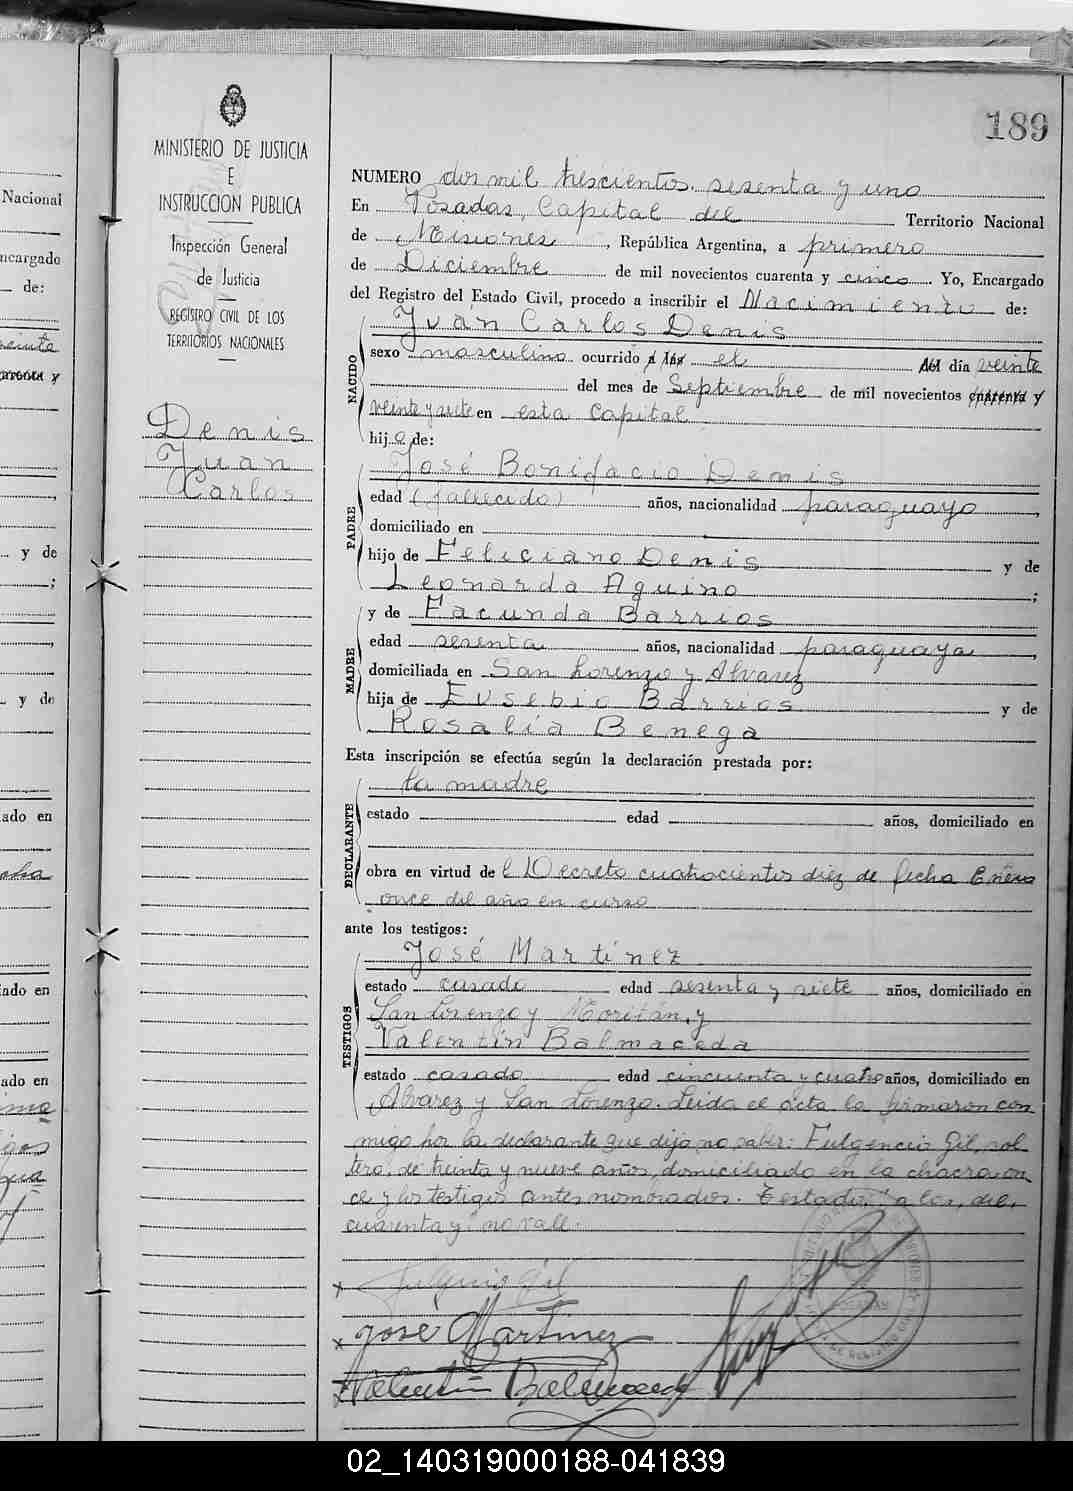 189
MINISTERIO DE JUSTICIA
E
INSTRUCCION PUBLICA
Inspección General
de Justicia
REGISTRO CIVIL DE LOS
TERRITORIOS NACIONALES
Denis
Juan
Carlos
NUMERO dos mil trescientos sesenta y uno
En Posadas, Capital del Territorio Nacional
de Misiones, República Argentina, a primero
de Diciembre de mil novecientos cuarenta y cinco. Yo, Encargado
del Registro del Estado Civil, procedo a inscribir el Nacimiento de:
Juan Carlos Denis
NACIDO
sexo masculino ocurrido a las el del día veinte
del mes de Septiembre de mil novecientos cuarenta y
veinte y siete en esta Capital
hijo de:
José Bonifacio Denis
PADRE
edad (fallecido) años, nacionalidad paraguayo,
domiciliado en
hijo de Feliciano Denis y de
Leonarda Aquino;
y de Facunda Barrios
MADRE
edad sesenta años, nacionalidad paraguaya,
domiciliada en San Lorenzo y Alvarez
hija de Eusebio Barrios y de
Rosalía Benega
Esta inscripción se efectúa según la declaración prestada por:
la madre
DECLARANTE
estado edad años, domiciliado en
obra en virtud de el Decreto cuatrocientos diez de fecha Enero
once del año en curso
ante los testigos:
José Martínez
TESTIGOS
estado casado edad sesenta y siete años, domiciliado en
San Lorenzo y Moritán, y
Valentín Balmaceda
estado casado edad cincuenta y cuatro años, domiciliado en
Alvarez y San Lorenzo. Leída el acta la firmaron con
migo por la declarante que dijo no saber: Fulgencio Gil, sol
tero, de treinta y nueve años, domiciliado en la chacra on
ce y los testigos antes nombrados. Testado: "a las, del,
cuarenta y" no vale.
x Fulgencio Gil
x José Martinez
x Valentin Balmaceda
Nacional
ncargado
de:
y de
y de
ado en
iado en
iado en
02_140319000188-041839